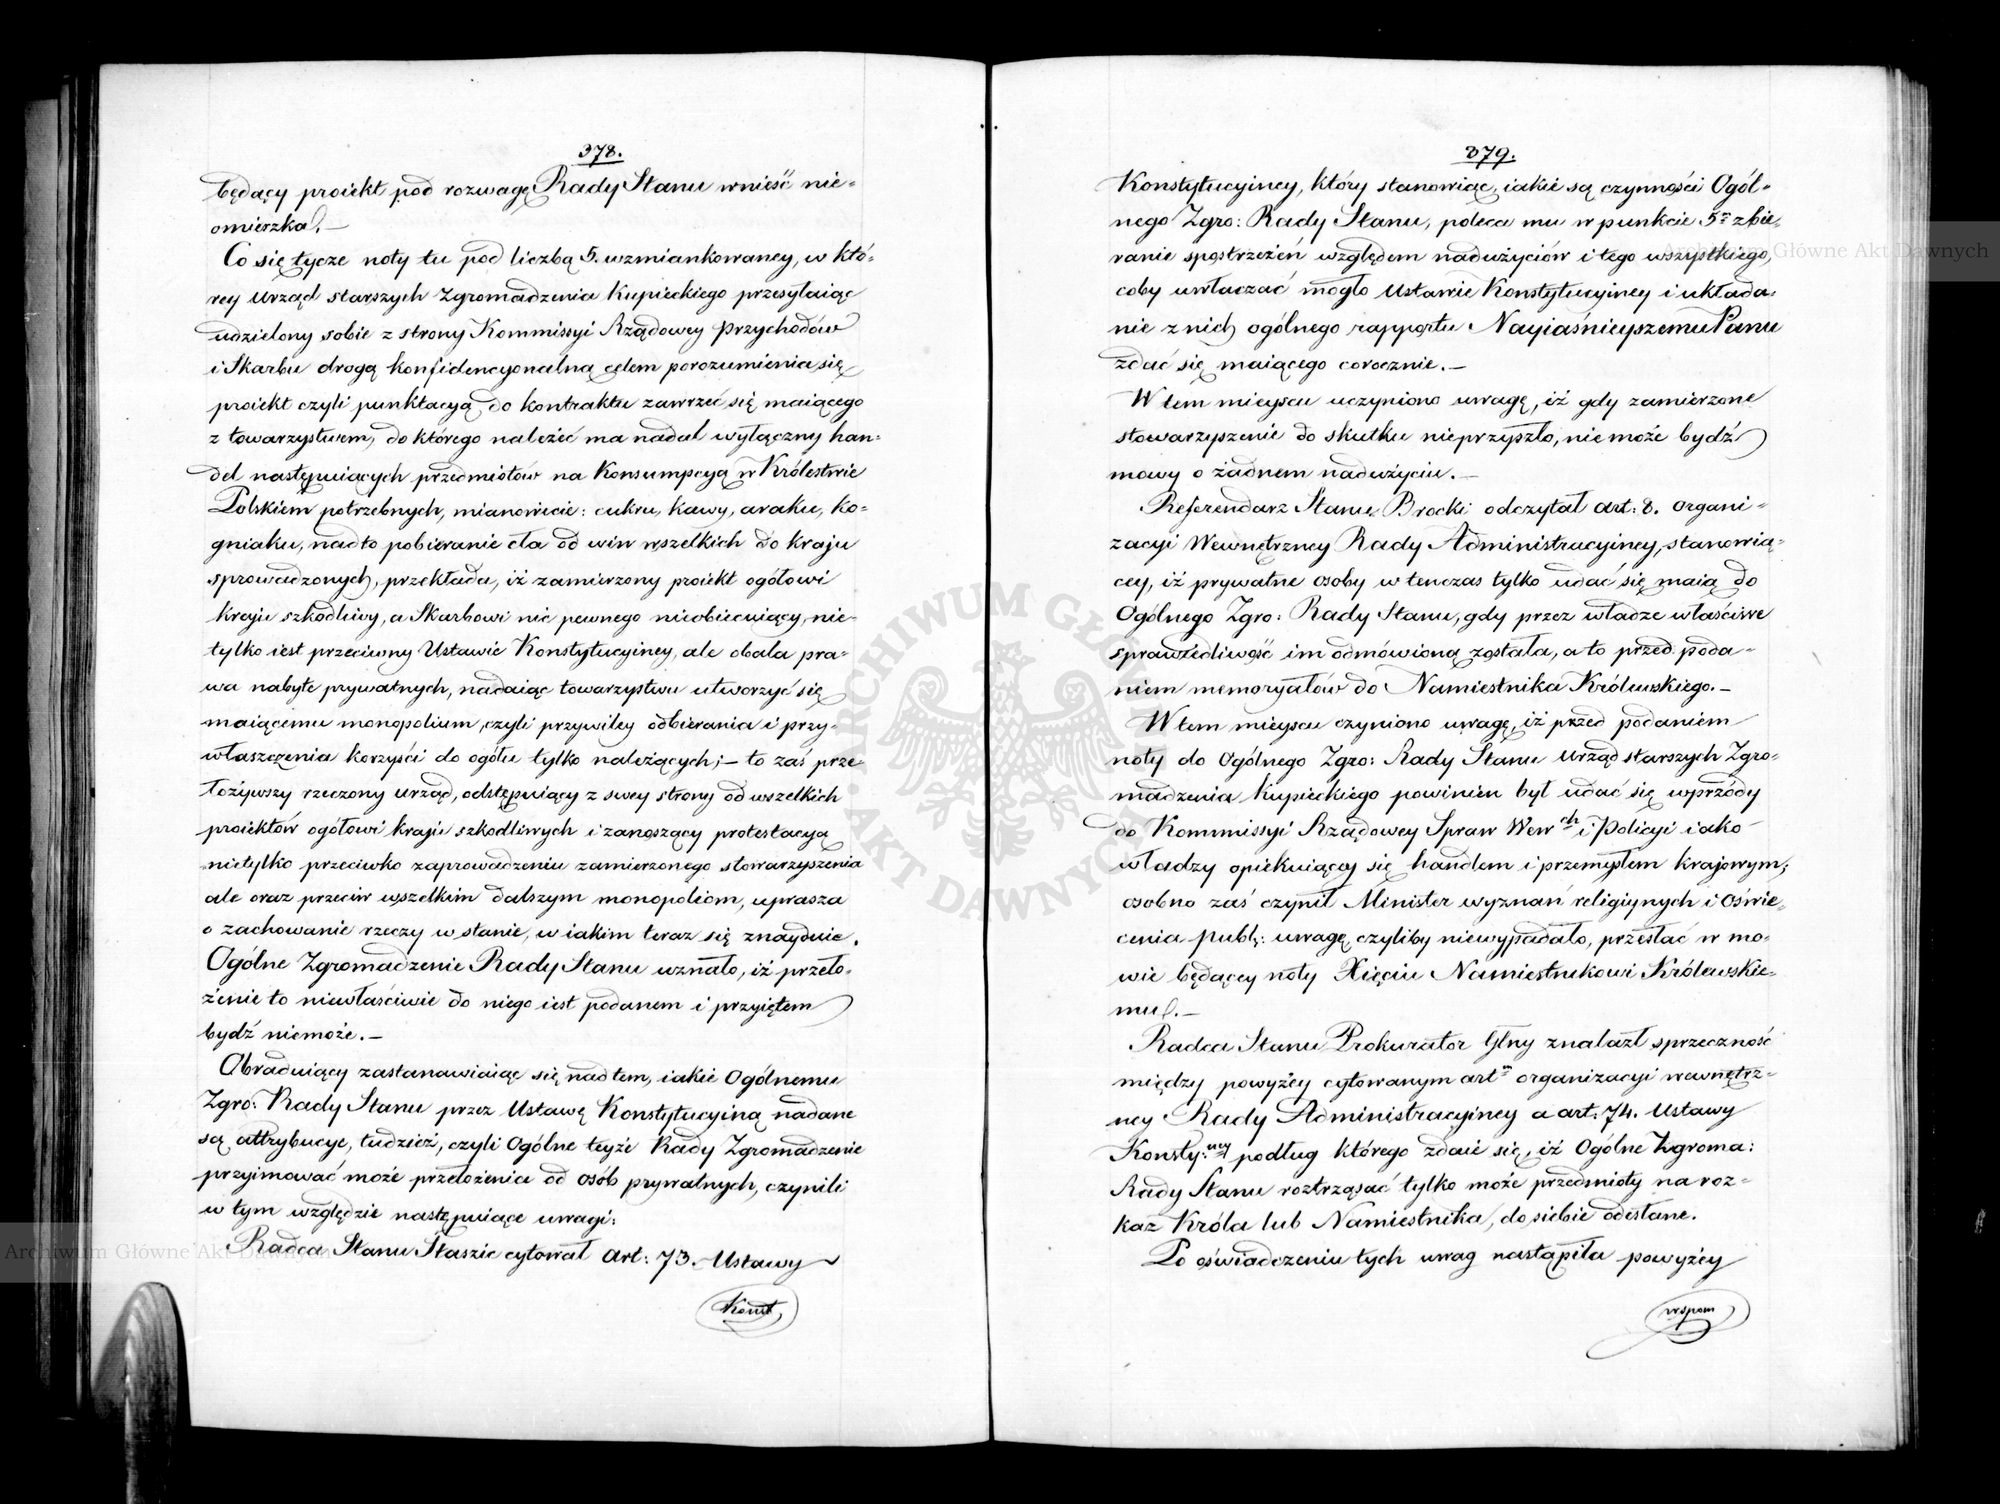 378.
będący proiekt pod rozwagę Rady Stanu wnieść nie=
omieszka.—
Co się tycze noty tu pod liczbą 5. wzmiankowaney, w któ=
rey Urząd starszych Zgromadzenia Kupieckiego przesyłaiąc
udzielony sobie z strony Kommissyi Rządowey Przychodów
i Skarbu drogą konfidencyonalną celem porozumienia się
proiekt czyli punktacyą do kontraktu zawrzeć się maiącego
z towarzystwem, do którego należeć ma nadal wyłączny han=
del następuiących przedmiotów na Konsumpcyą w Królestwie
Polskiem potrzebnych, mianowicie: cukru, kawy, araku, ko=
gniaku, nadto pobieranie cła od win wszelkich do kraju
sprowadzonych, przekłada, iż zamierzony proiekt ogółowi
kraju szkodliwy, a Skarbowi nic pewnego nieobiecuiący, nie=
tylko iest przeciwny Ustawie Konstytucyiney, ale obala pra=
wa nabyte prywatnych, nadaiąc towarzystwu utworzyć się
maiącemu monopolium, czyli przywiley odbierania i przy=
właszczenia korzyści do ogółu tylko należących;— to zaś prze=
łożywszy rzeczony Urząd, odstępuiący z swey strony od wszelkich
proiektów ogółowi kraju szkodliwych i zanoszący protestacyą
nietylko przeciwko zaprowadzeniu zamierzonego stowarzyszenia
ale oraz przeciw wszelkim dalszym monopoliom, uprasza
o zachowanie rzeczy w stanie, w iakim teraz się znayduie.
Ogólne Zgromadzenie Rady Stanu uznało, iż przeło=
żenie to niewłaściwie do niego iest podanem i przyiętem
bydź niemoże.—
Obraduiący zastanawiaiąc się nad tem, iakie Ogólnemu
Zgro: Rady Stanu przez Ustawę Konstytucyiną nadane
są attrybucye, tudzież, czyli Ogólne teyże Rady Zgromadzenie
przyimować może przełożenia od osób prywatnych, czynili
w tym względzie następuiące uwagi:
Radca Stanu Staszic cytował Art: 73. Ustawy
Konst
379.
Konstytucyiney, który stanowiąc, iakie są czynności Ogól=
nego Zgro: Rady Stanu, poleca mu w punkcie 5m zbie=
ranie spostrzeżeń względem nadużyciów i tego wszystkiego,
coby uwłaczać mogło Ustawie Konstytucyiney i układa=
nie z nich ogólnego rapportu Nayiaśnieyszemu Panu
zdać się maiącego corocznie.—
W tem mieyscu uczyniono uwagę, iż gdy zamierzone
stowarzyszenie do skutku nieprzyszło, nie może bydź
mowy o żadnem nadużyciu.—
Referendarz Stanu Brocki odczytał art: 8. organi=
zacyi Wewnętrzney Rady Administracyiney, stanowią=
cey, iż prywatne osoby w tenczas tylko udać się maią do
Ogólnego Zgro: Rady Stanu, gdy przez władze właściwe
sprawiedliwość im odmówioną została, a to przed poda=
niem memoryałów do Namiestnika Królewskiego.—
W tem mieyscu czyniono uwagę, iż przed podaniem
noty do Ogólnego Zgro: Rady Stanu Urząd starszych Zgro=
madzenia Kupieckiego powinien był udać się wprzódy
do Kommissyi Rządowey Spraw Wewch i Policyi iako
władzy opiekuiącey się handlem i przemysłem krajowym;
osobno zaś czynił Minister wyznań religiynych i Oświe=
cenia publ: uwagę, czyliby niewypadało, przesłać w mo=
wie będącey noty Xięciu Namiestnikowi Królewskie=
mu.—
Radca Stanu Prokurator Glny znalazł sprzeczność
między powyżey cytowanym artm organizacyi wewnętrz=
ney Rady Administracyiney a art: 74. Ustawy
Konsty:ney podług którego zdaie się, iż Ogólne Zgroma:
Rady Stanu roztrząsać tylko może przedmioty na roz=
kaz Króla lub Namiestnika, do siebie odesłane.
Po oświadczeniu tych uwag nastąpiła powyżey
wspom
Archiwum Główne Akt Dawnych
Archiwum Główne Akt Dawnych
ARCHIWUM GŁÓWNE AKT DAWNYCH